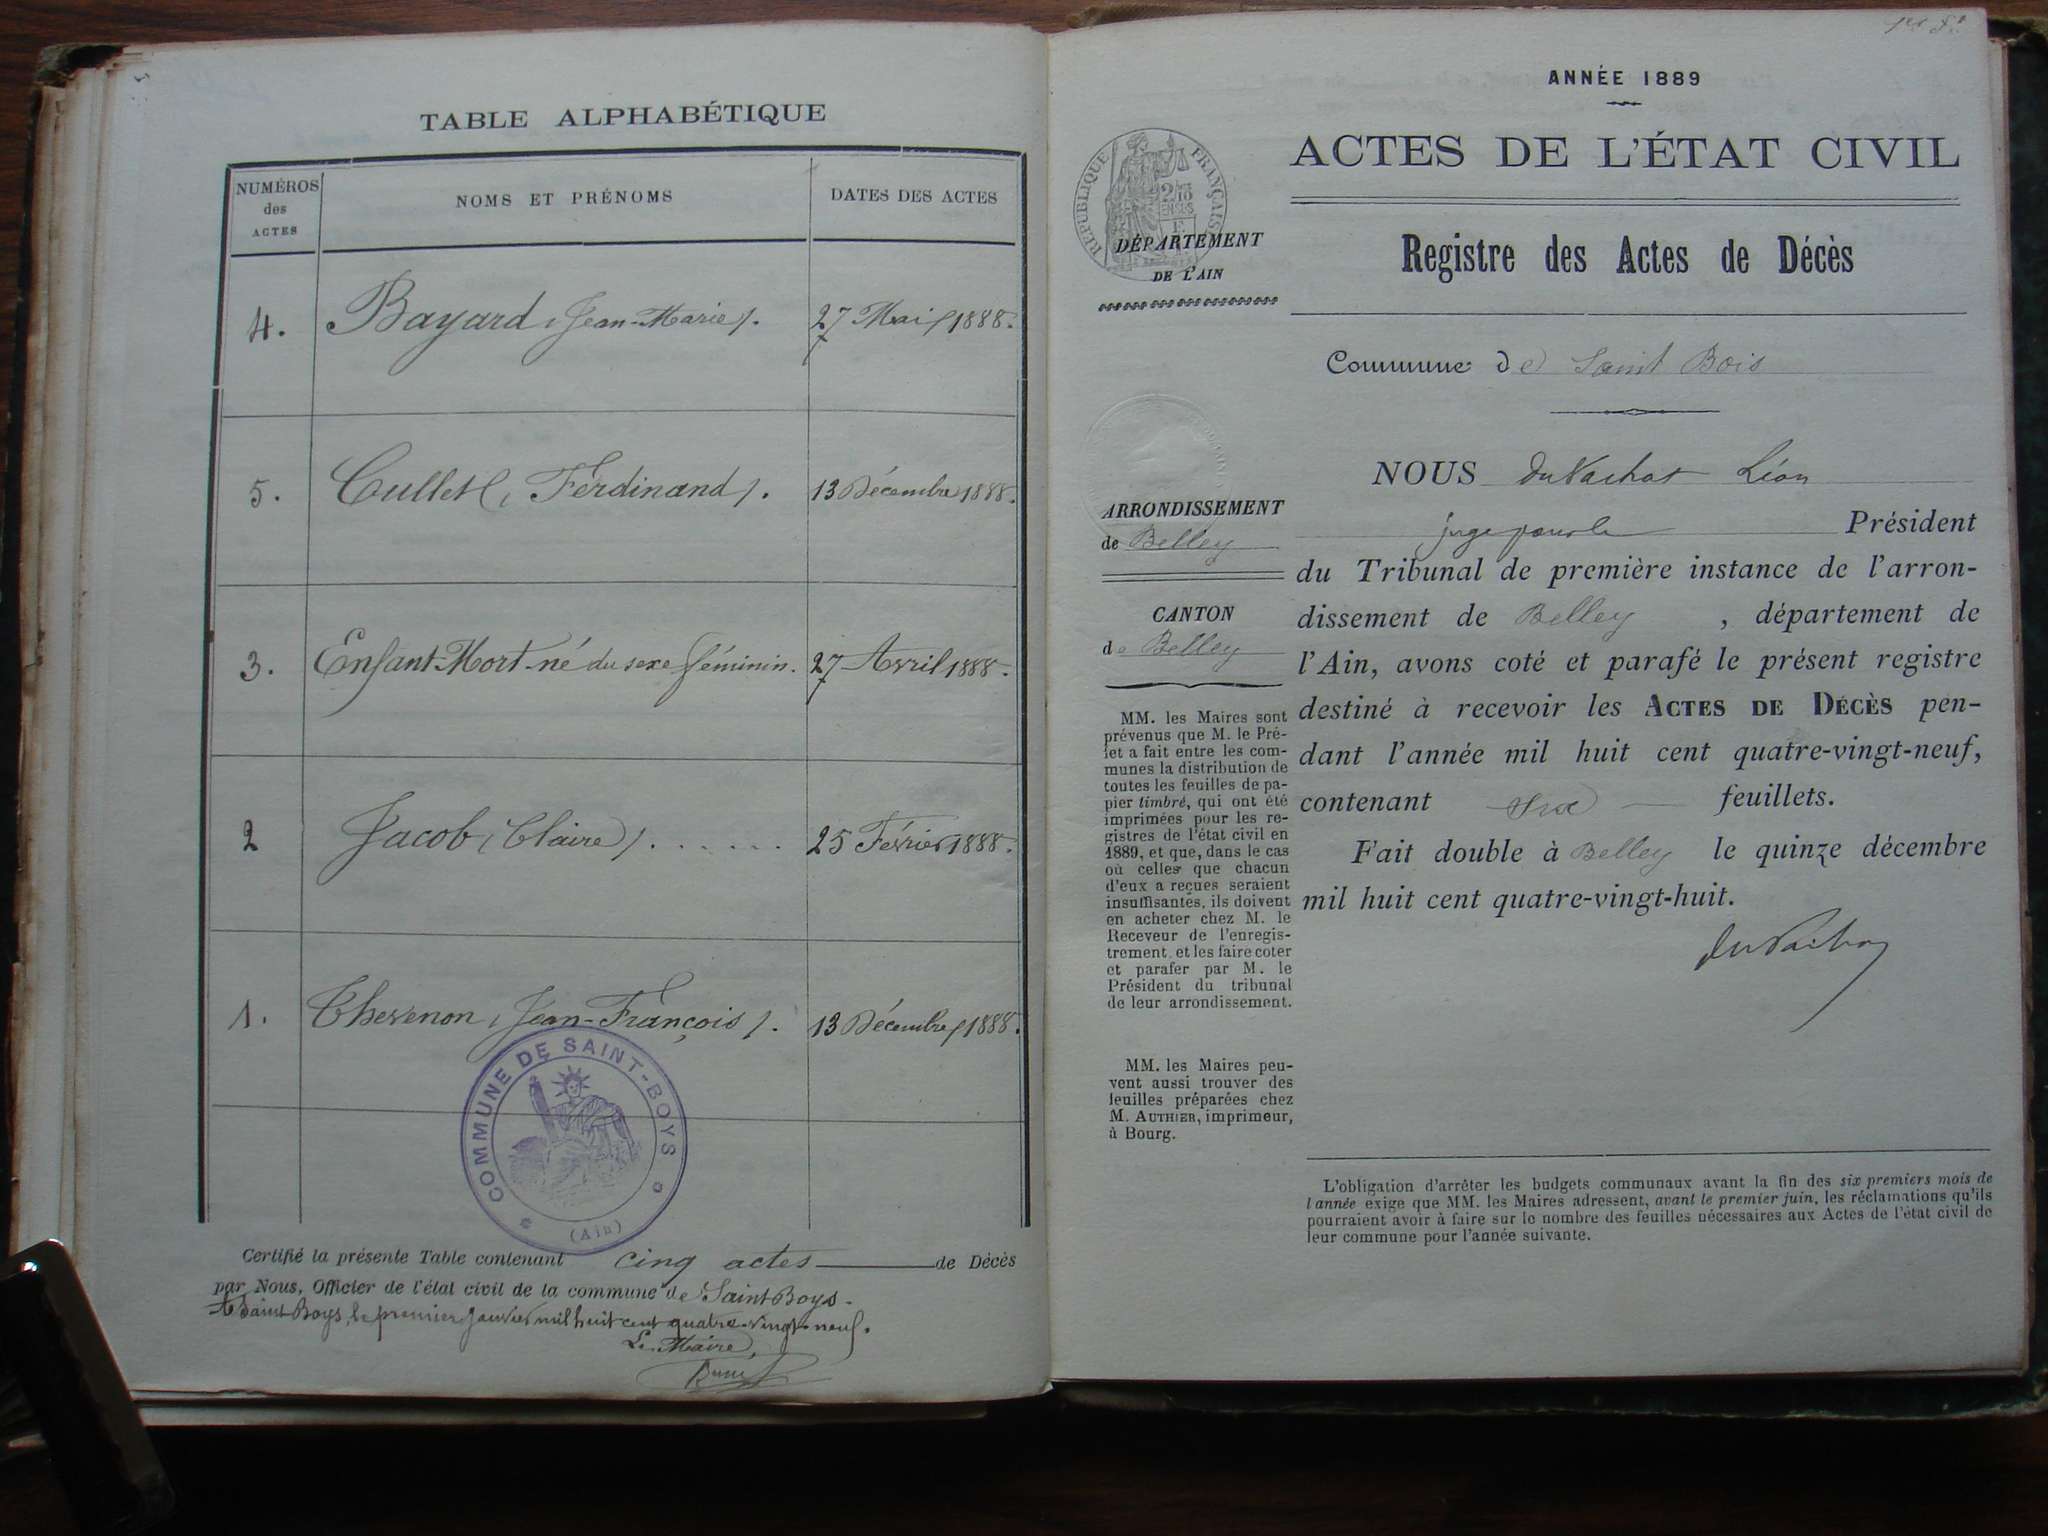 TABLE ALPHABÉTIQUE
NUMÉROS des ACTES
NOMS ET PRÉNOMS
DATES DES ACTES
4. Bayard (Jean-Marie). 27 Mai 1888.
5. Cullet (Ferdinand). 13 Décembre 1888.
3. Enfant Mort-né du sexe féminin. 27 Avril 1888.
2 Jacob (Claire) . . . . . . 25 Février 1888.
1. Thevenon (Jean-François). 13 Décembre 1888.
COMMUNE DE SAINT-BOYS
(Ain)
Certifié la présente Table contenant cinq actes de Décès
par Nous, Officier de l'état civil de la commune de Saint Boys.
A Saint Boys, le premier Janvier mil huit cent quatre-vingt-neuf.
Le Maire,
ANNÉE 1889
ACTES DE L'ÉTAT CIVIL
RÉPUBLIQUE FRANÇAISE
DÉPARTEMENT
DE L'AIN
Registre des Actes de Décès
Commune de Saint Bois
ARRONDISSEMENT
de Belley
CANTON
de Belley
MM. les Maires sont
prévenus que M. le Pré-
fet a fait entre les com-
munes la distribution de
toutes les feuilles de pa-
pier timbré, qui ont été
imprimées pour les re-
gistres de l'état civil en
1889, et que, dans le cas
où celles que chacun
d'eux a reçues seraient
insuffisantes, ils doivent
en acheter chez M. le
Receveur de l'enregis-
trement, et les faire coter
et parafer par M. le
Président du tribunal
de leur arrondissement.
MM. les Maires peu-
vent aussi trouver des
feuilles préparées chez
M. AUTHIER, imprimeur,
à Bourg.
NOUS du Vachat Léon
juge pour le Président
du Tribunal de première instance de l'arron-
dissement de Belley , département de
l'Ain, avons coté et parafé le présent registre
destiné à recevoir les ACTES DE DÉCÈS pen-
dant l'année mil huit cent quatre-vingt-neuf,
contenant six feuillets.
Fait double à Belley le quinze décembre
mil huit cent quatre-vingt-huit.
du Vachat
L'obligation d'arrêter les budgets communaux avant la fin des six premiers mois de
l'année exige que MM. les Maires adressent, avant le premier juin, les réclamations qu'ils
pourraient avoir à faire sur le nombre des feuilles nécessaires aux Actes de l'état civil de
leur commune pour l'année suivante.